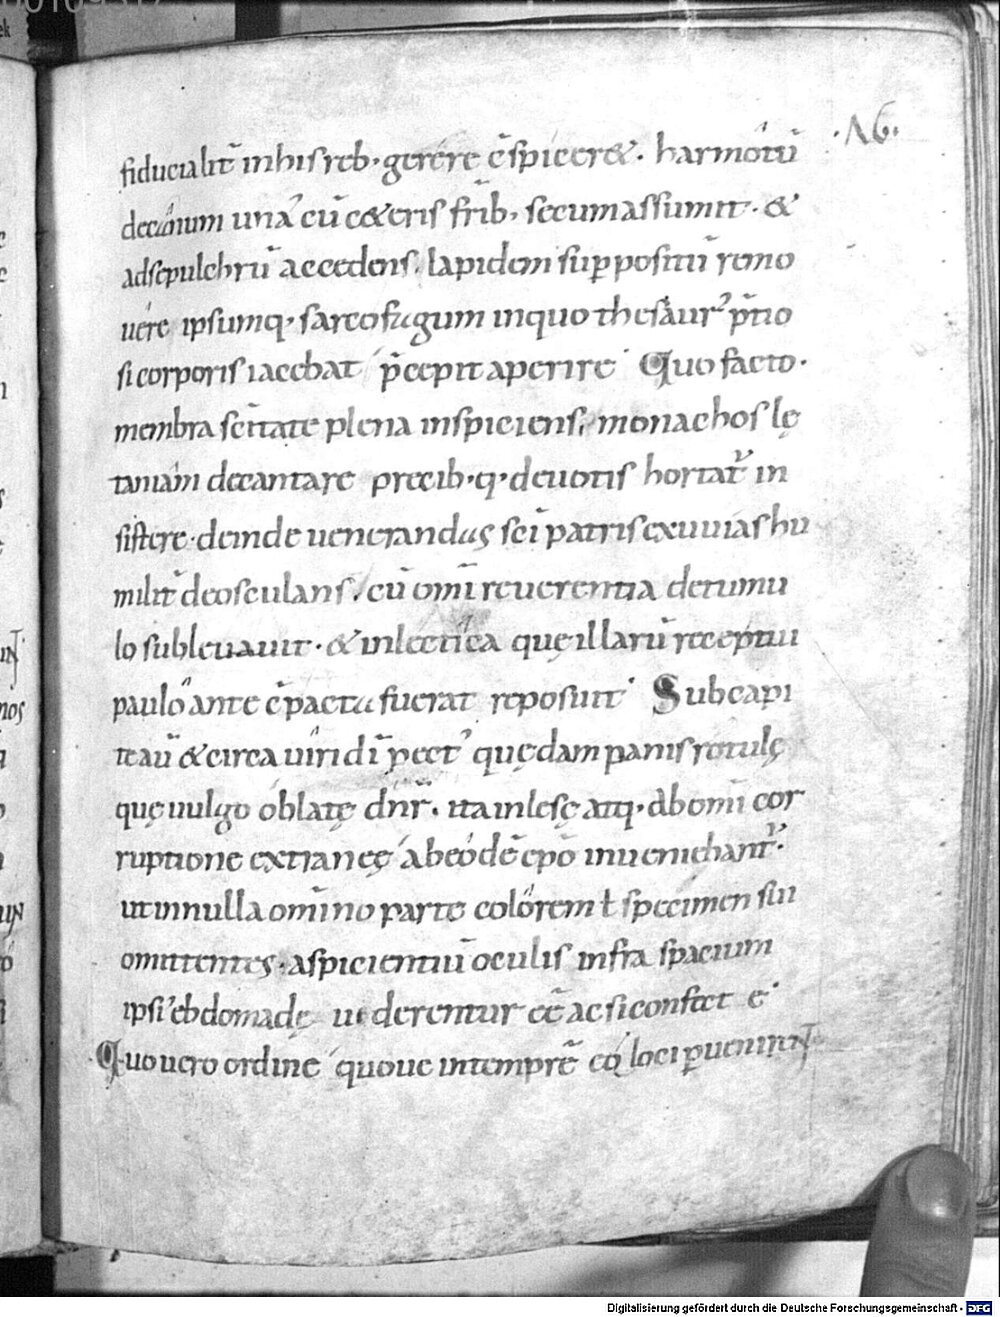 ·λ6·
fiducialit̄ inhis reb· gerere c̄spicer&. harmotū
decanum una cū c&eris frīb; secum assumit· &
ad sepulchrū accedens, lapidem suppositū remo
uere ipsumq· sarcofagum inquo thesaur᾽ p̄tio
si corporis iacebat p̄cepit aperire· Quo facto·
membra sc̄itate plena inspiciens, monachos lę
taniam decantare precib·q· deuotis hortat̄ in
sistere· deinde uenerandas sc̄i patris exuuias hu
milit̄ deosculans, cū om̄i reuerentia detumu
lo subleuauit· & inlectica quę illarū receptui
paulo ante c̄pacta fuerat reposuit· Sub capi
te aū & circa uiri dī pect᾽ quędam panis rotulę
quę uulgo oblatę dn̄r. ita inlesę atq· abom̄i cor
ruptione extraneę ab eodē ep̄o inueniebant̄·
ut innulla om̄ino parte colorem ł specimen sui
omittentes· aspicientiū oculis infra spacium
ipsi᾽ ebdomadę uiderentur eē ac si confect e᾽
Quo uero ordine quoue intemprē ea loci puenirint
Digitalisierung gefördert durch die Deutsche Forschungsgemeinschaft - DFG